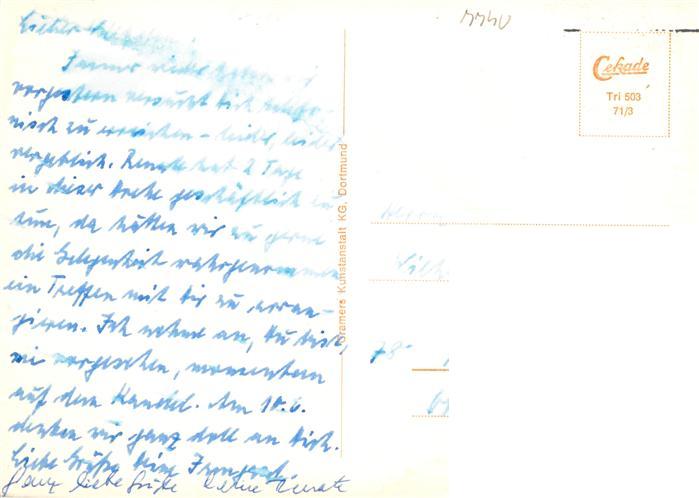 7740
Lieber
Immer wieder haben wir
vorgestern versucht dich telefo-
nisch zu erreichen - leider, leider
vergeblich. Renate hat 2 Tage
in dieser Ecke geschäftlich zu
tun, da hätten wir zu gerne
die Gelegenheit wahrgenommen
ein Treffen mit dir zu arran-
gieren. Ich nehme an, du bist,
wie vorgesehen, momentan
auf dem Kandel. Am 10.6.
denken wir ganz doll an dich.
Liebe Grüße dein Irmgard
Ganz liebe Grüße deine Renate
Cramers Kunstanstalt KG, Dortmund
Cekade
Tri 503
71/3
Herrn
78